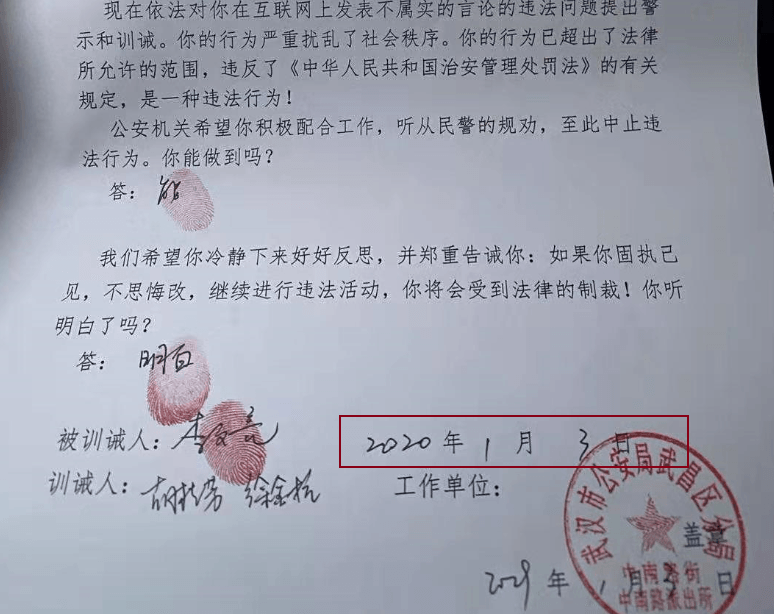 现在依法对你在互联网上发表不属实的言论的违法问题提出警
示和训诫。你的行为严重扰乱了社会秩序。你的行为已超出了法律
所允许的范围，违反了《中华人民共和国治安管理处罚法》的有关
规定，是一种违法行为！
公安机关希望你积极配合工作，听从民警的规劝，至此中止违
法行为。你能做到吗？
答：能
我们希望你冷静下来好好反思，并郑重告诫你：如果你固执己
见，不思悔改，继续进行违法活动，你将会受到法律的制裁！你听
明白了吗？
答：明白
被训诫人：李文亮 2020年1月3日
训诫人：胡桂芳 徐金杭 工作单位：
武汉市公安局武昌区分局
盖章
中南路街
中南路派出所
年1月3日